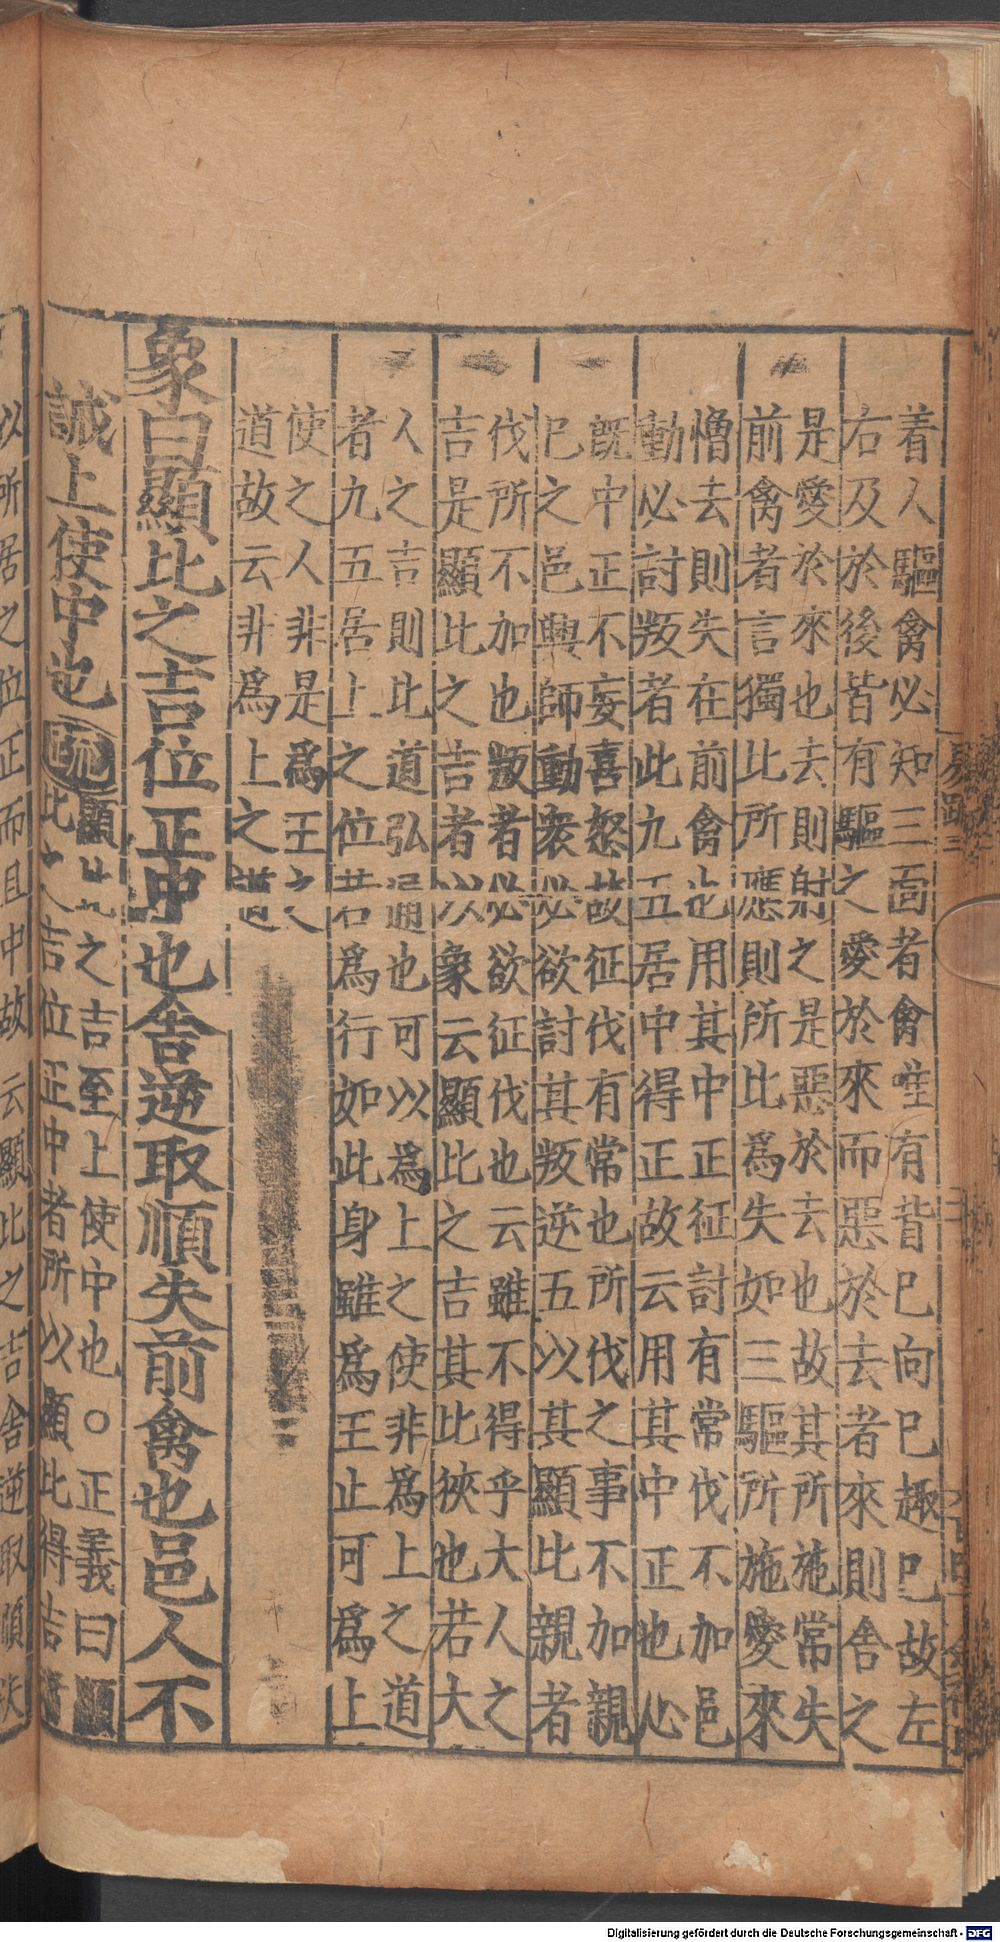 着人驅禽必知三面者禽唯有背巳向巳趣巳故左
右及於後皆有驅之愛於來而惡於去者來則舍之
是愛於來也去則射之是惡於去也故其所施常失
前禽者言獨比所應則所比爲失如三驅所施愛來
憎去則失在前禽也用其中正征討有常伐不加邑
動必討叛者此九五居中得正故云用其中正也心
旣中正不妄喜怒故征伐有常也所伐之事不加親
巳之邑興師動衆必欲討其叛逆五以其顯比親者
伐所不加也叛者必欲征伐也云雖不得乎大人之
吉是顯比之吉者以象云顯比之吉其比狹也若大
人之吉則比道弘通也可以爲上之使非爲上之道
者九五居上之位若爲行如此身雖爲王止可爲上
使之人非是爲王之
道故云非爲上之道
象曰顯比之吉位正中也舍逆取順失前禽也邑人不
誡上使中也疏
顯比之吉至上使中也○正義曰顯
比之吉位正中者所以顯比得吉者
以所居之位正而且中故云顯比之吉舍逆取順失
易疏三
Digitalisierung gefördert durch die Deutsche Forschungsgemeinschaft - DFG